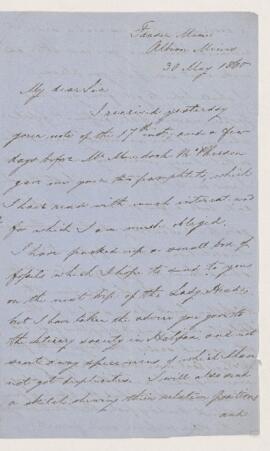 Fraser Mine
Albion Mines
30 May 1865
My dear Sir
I received yesterday
your note of the 17th inst, and a few
days before Mr Murdoch McPherson
gave me your two pamphlets, which
I have read with much interest and
for which I am much obliged.
I have packed up a small box of
fossils which I hope to send to you
on the next trip of the Lady Head,
but I have taken the advice you gave to
the literary society in Halifax and not
sent away specimens of which I have
not got duplicates. I will also send
a sketch shewing their relative positions
and